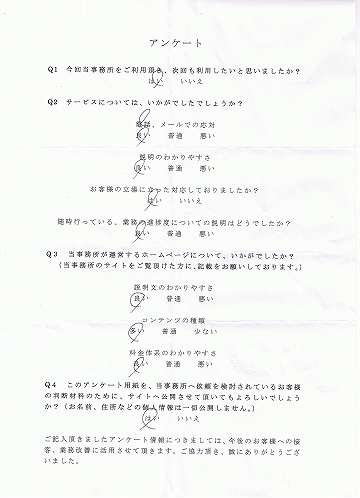 アンケート
Q1 今回当事務所をご利用頂き、次回も利用したいと思いましたか？
はい いいえ
Q2 サービスについては、いかがでしたでしょうか？
電話、メールでの応対
良い 普通 悪い
説明のわかりやすさ
良い 普通 悪い
お客様の立場に立った対応しておりましたか？
はい いいえ
随時行っている、業務の進捗度についての説明はどうでしたか？
良い 普通 悪い
Q3 当事務所が運営するホームページについて、いかがでしたか？
（当事務所のサイトをご覧頂けた方に、記載をお願いしております。）
説明文のわかりやすさ
良い 普通 悪い
コンテンツの種類
多い 普通 少ない
料金体系のわかりやすさ
良い 普通 悪い
Q4 このアンケート用紙を、当事務所へ依頼を検討されているお客様
の判断材料のために、サイトへ公開させて頂いてもよろしいでしょう
か？（お名前、住所などの個人情報は一切公開しません。）
はい いいえ
ご記入頂きましたアンケート情報につきましては、今後のお客様への接
客、業務改善に活用させて頂きます。ご協力頂き、誠にありがとうござ
いました。